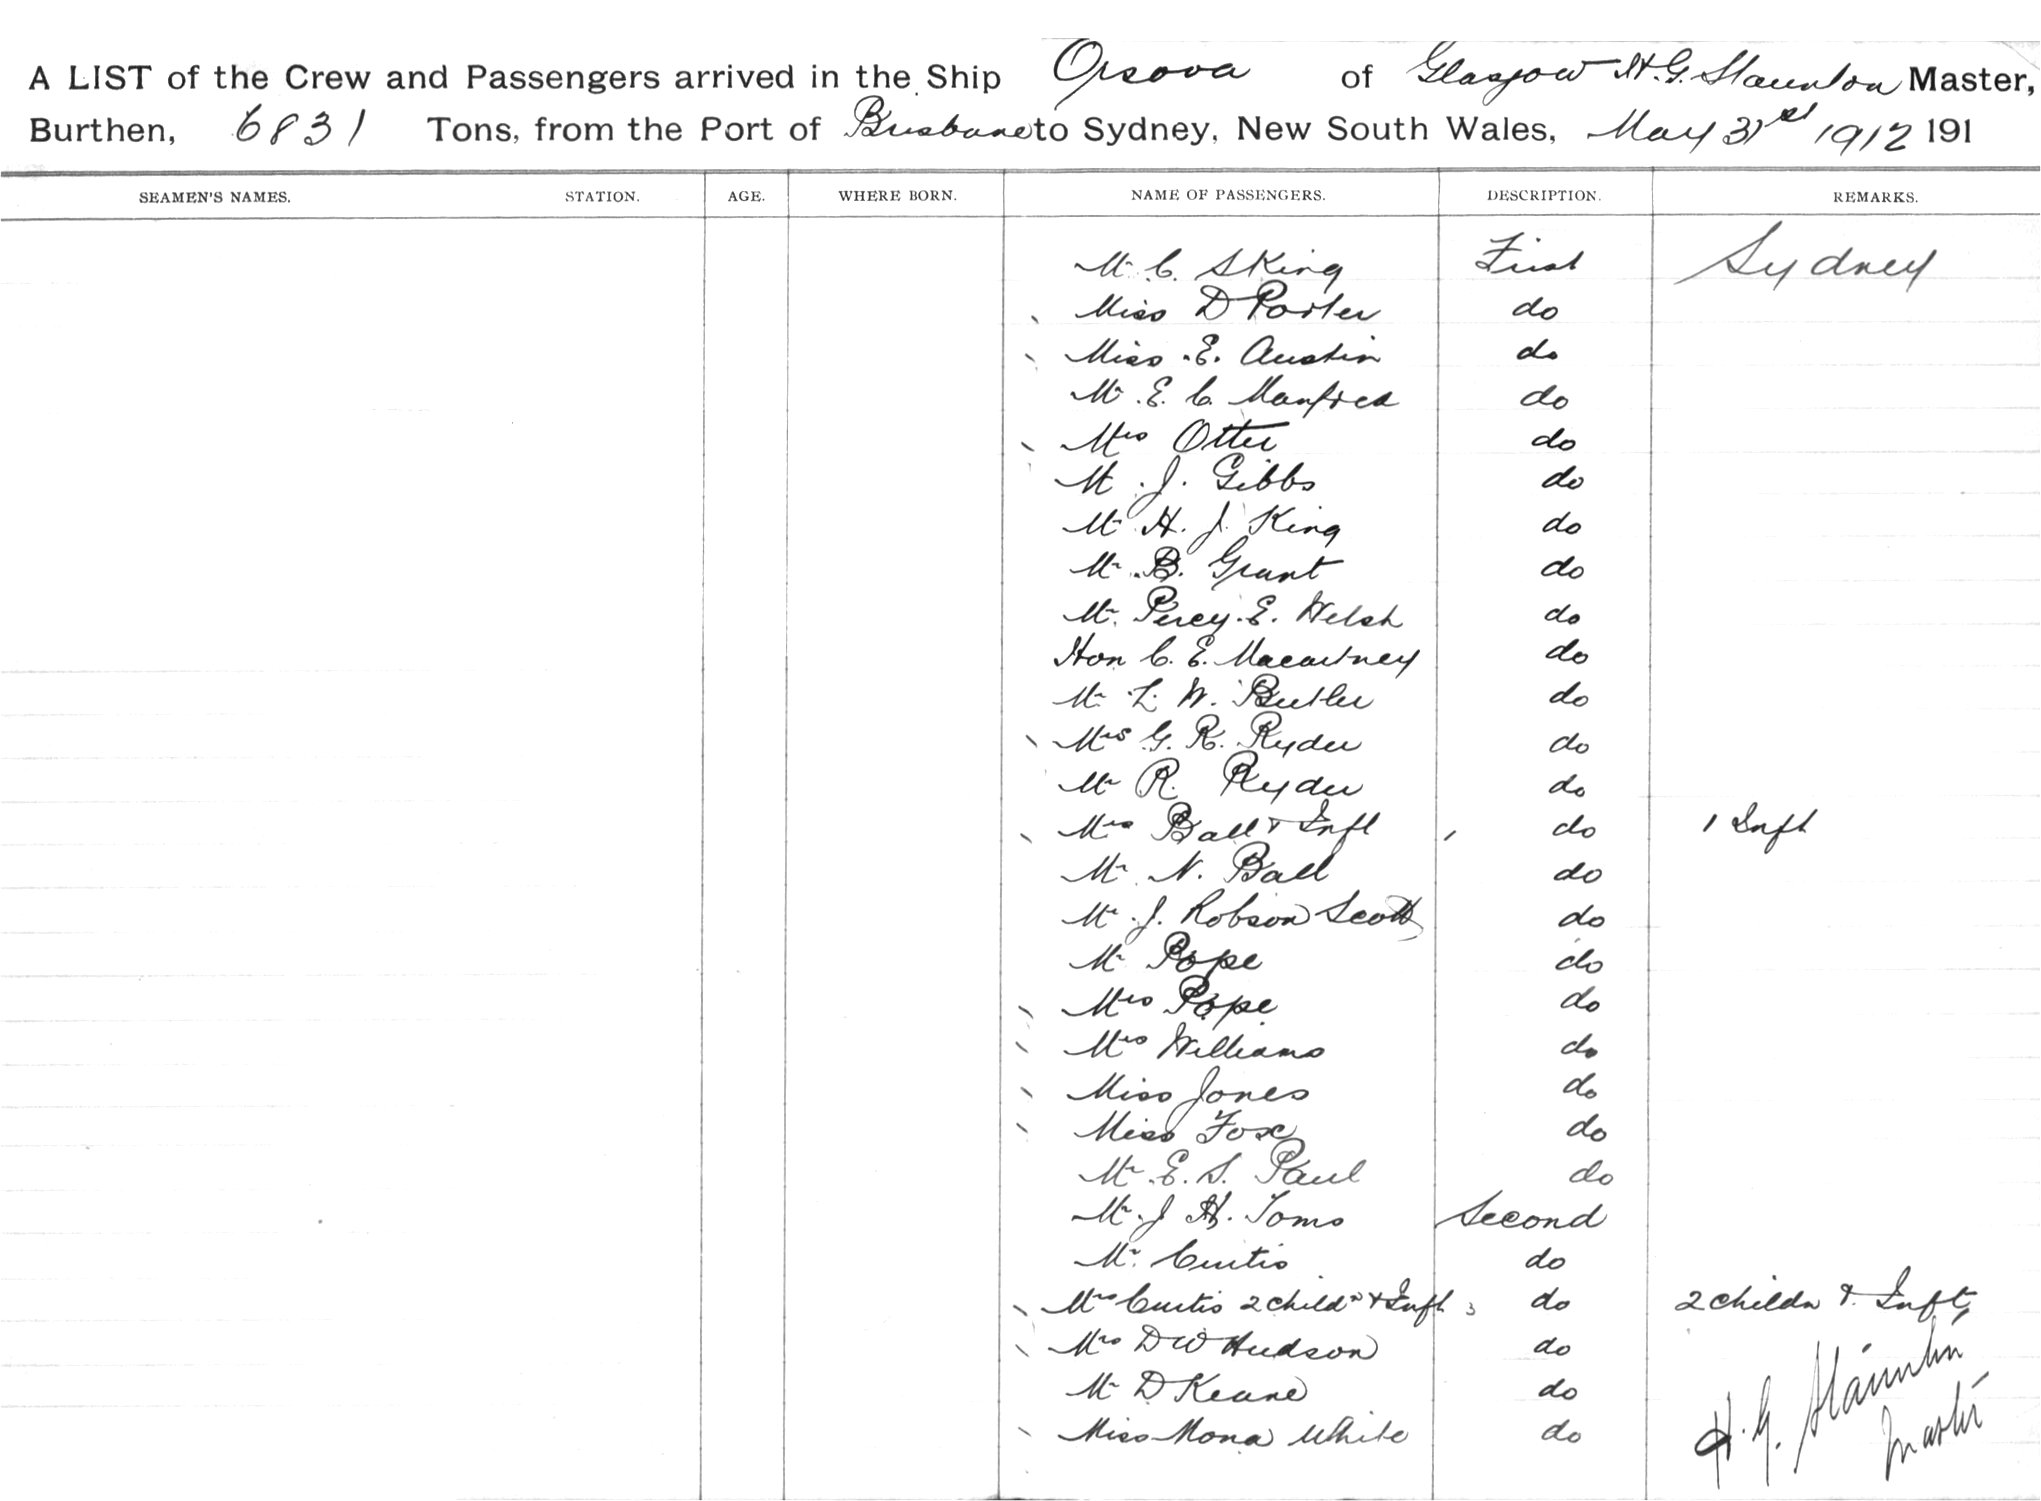 A LIST of the Crew and Passengers arrived in the Ship Orsova of Glasgow H. G. Staunton Master,
Burthen, 6831 Tons, from the Port of Brisbane to Sydney, New South Wales, May 31st 1912 191
SEAMEN'S NAMES. STATION. AGE. WHERE BORN. NAME OF PASSENGERS. DESCRIPTION. REMARKS.
Mr C. S King First Sydney
Miss D Porter do
Miss E. Austin do
Mr E. C. Manfred do
Mrs Otter do
Mr J. Gibbs do
Mr H. J. King do
Mr B. Grant do
Mr Percy. E. Welsh do
Hon C. E. Macartney do
Mr L. W. Butler do
Mrs G. R. Ryder do
Mr R. Ryder do
Mrs Ball & Inft do 1 Inft
Mr N. Ball do
Mr J. Robson Scott do
Mr Pope do
Mrs Pope do
Mrs Williams do
Miss Jones do
Miss Fox do
Mr E. S. Paul do
Mr J H. Toms Second
Mr Curtis do
Mrs Curtis 2 childn & Inft 3 do 2 childn & Inft,
Mrs D W Hudson do
Mr D Keane do
Miss Mona White do
H. G. Staunton
Master